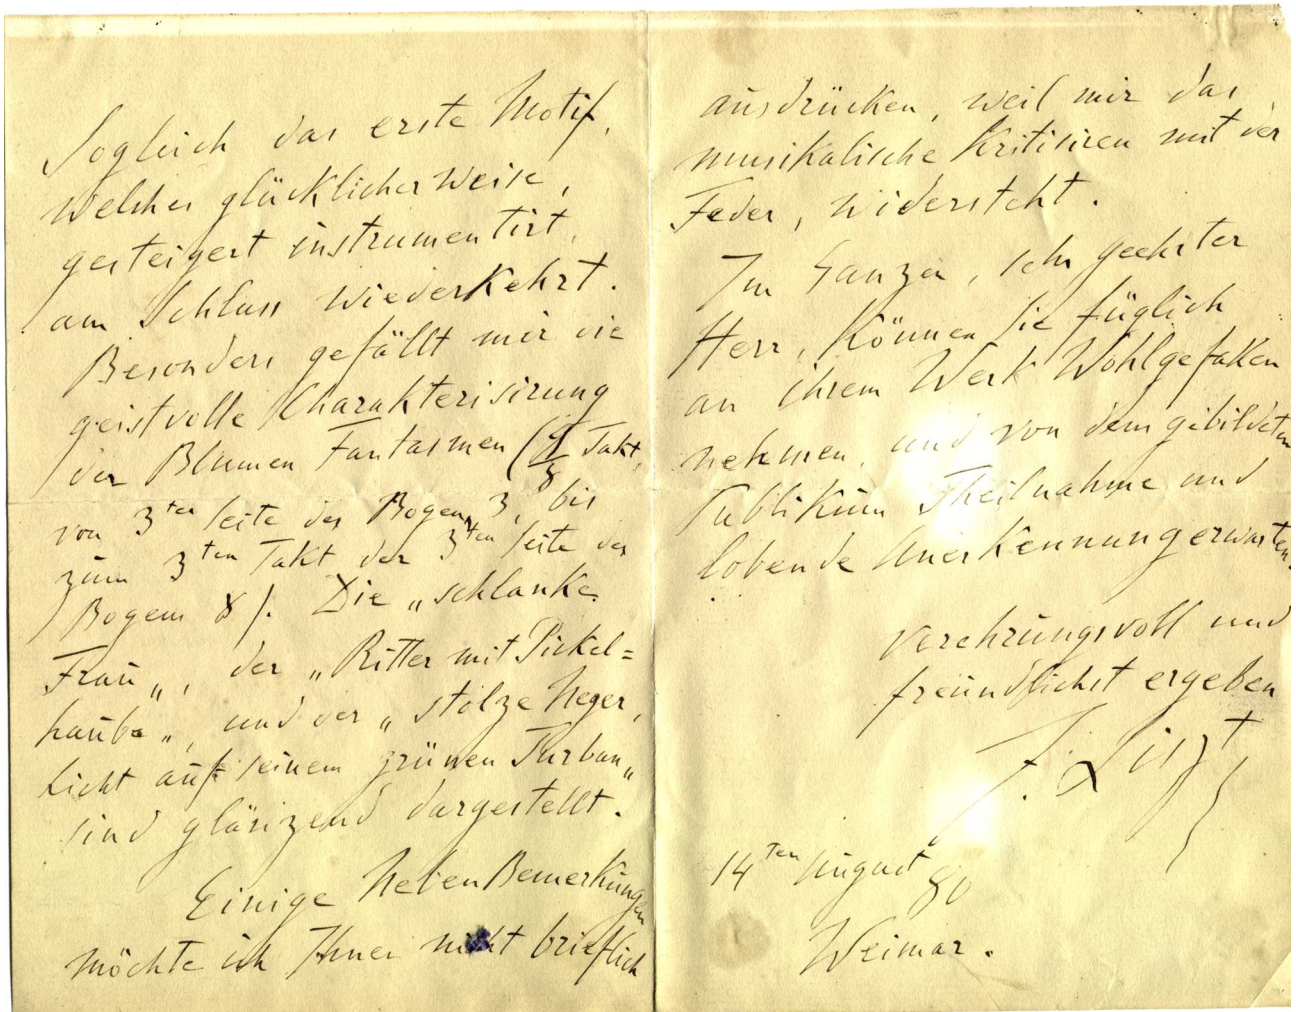 Sogleich das erste Motif,
welches glücklicher Weise,
gesteigert instrumentirt,
am Schluss wiederkehrt.
Besonders gefällt mir die
geistvolle Charakterisirung
der Blumen Fantasmen (9/8 Takt,
von 3ter Seite des Bogens 3, bis
zum 3ten Takt der 3ten Seite des
Bogens 8). Die „schlanke
Frau„, der „Ritter mit Pickel=
haube„, und der „stolze Neger,
licht auf seinem grünen Turban„
sind glänzend dargestellt.
Einige Neben Bemerkungen
möchte ich Ihnen nicht brieflich
ausdrücken, weil mir das
musikalische Kritisiren mit der
Feder, widersteht.
Im Ganzen, sehr geehrter
Herr, können Sie füglich
an ihrem Werk Wohlgefallen
nehmen, und von dem gebildeten
Publikum Theilnahme und
lobende Anerkennung erwarten.
Verehrungsvoll und
freundlichst ergeben
F. Liszt
14ten August 80
Weimar.